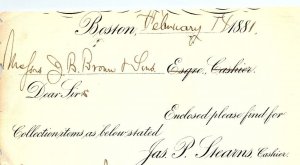 Boston, February 1881.
Messrs J. B. Brown & Sons Esqre, Cashier.
Dear Sirs
Enclosed please find for
Collection items, as below stated
Jas. P. Stearns, Cashier.